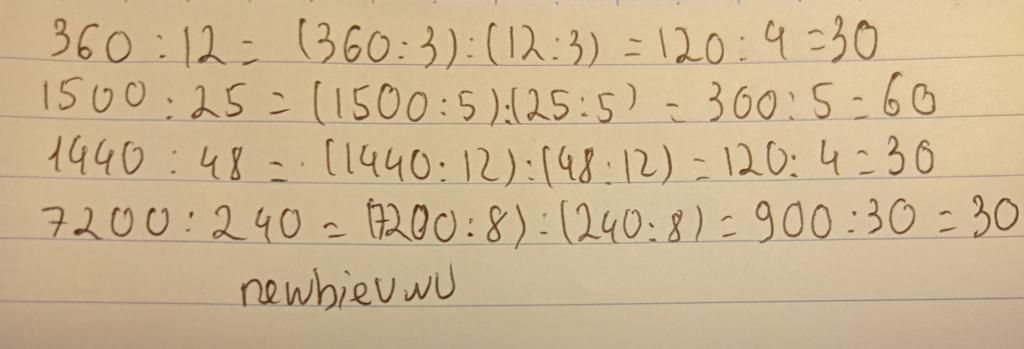 360 : 12 = (360 : 3) : (12 : 3) = 120 : 4 = 30
1500 : 25 = (1500 : 5) : (25 : 5) = 300 : 5 = 60
1440 : 48 = (1440 : 12) : (48 : 12) = 120 : 4 = 30
7200 : 240 = (7200 : 8) : (240 : 8) = 900 : 30 = 30
newbieUwU